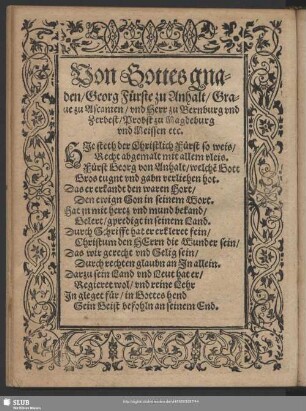 Von Gottes gna-
den/Georg Fürste zu Anhalt/Gra-
ue zu Ascanien/vnd Herr zu Bernburg vnd
Zerbest/Probst zu Magdeburg
vnd Meissen etc.
HJe steth der Christlich Fürst so weis/
Recht abgemalt mit allem vleis.
Fürst Georg von Anhalt/welchē Gott
Gros tugnt vnd gabn verliehen hot.
Das er erkandt den waren Hort/
Den ewign Son in seinem Wort.
Hat jn mit hertz vnd mund bekand/
Gelert/gpredigt in seinem Land.
Durch Schrifft hat er erkleret fein/
Christum den HErrn die Wunder sein/
Das wir gerecht vnd Selig sein/
Durch rechten glaubn an Jn allein.
Darzu sein Land vnd Leut hat er/
Regieret wol/vnd reine Lehr
Jn glieget für/in Gottes hend
Sein Geist befohln an seinem End.
SLUB